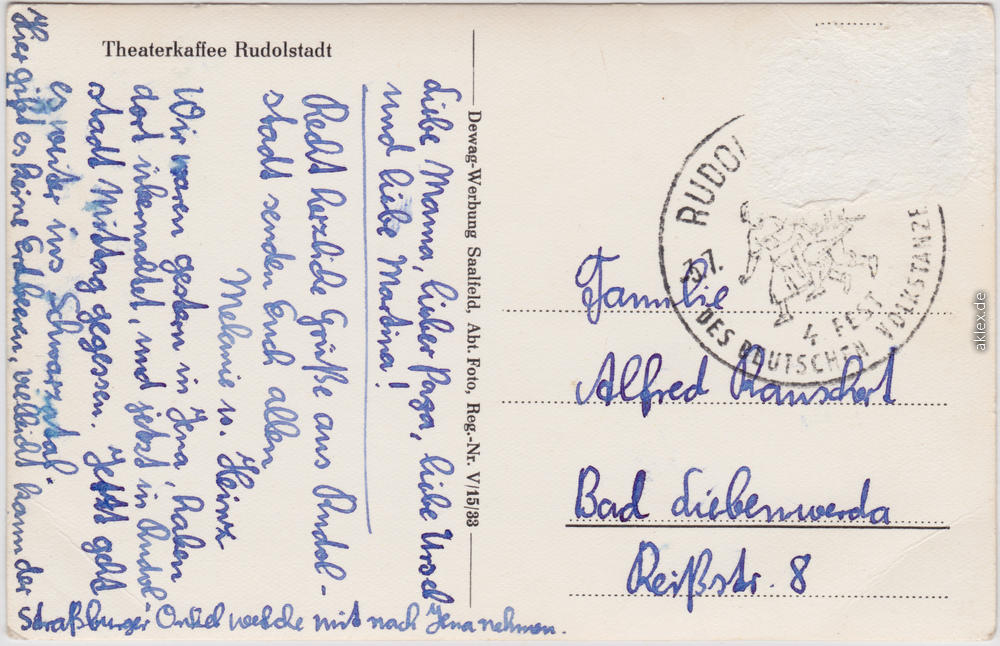 Theaterkaffee Rudolstadt
Liebe Mama, lieber Papa, liebe Ursel
und liebe Martina!
Recht herzliche Grüße aus Rudol-
stadt senden Euch allen
Melanie u. Heinz
Wir waren gestern in Jena, haben
dort übernachtet, und jetzt in Rudol-
stadt Mittag gegessen. Jetzt geht
es weiter ins Schwarzatal
Hier gibt es keine Erdbeeren, velleicht kann der
Straßburger Onkel welche mit nach Jena nehmen.
Dewag-Werbung Saalfeld, Abt. Foto, Reg.-Nr. V/15/33
RUDOL
4. FEST
DES DEUTSCHEN VOLKSTANZE
Familie
Alfred Rauschert
Bad Liebenwerda
Reißstr. 8
aklex.de